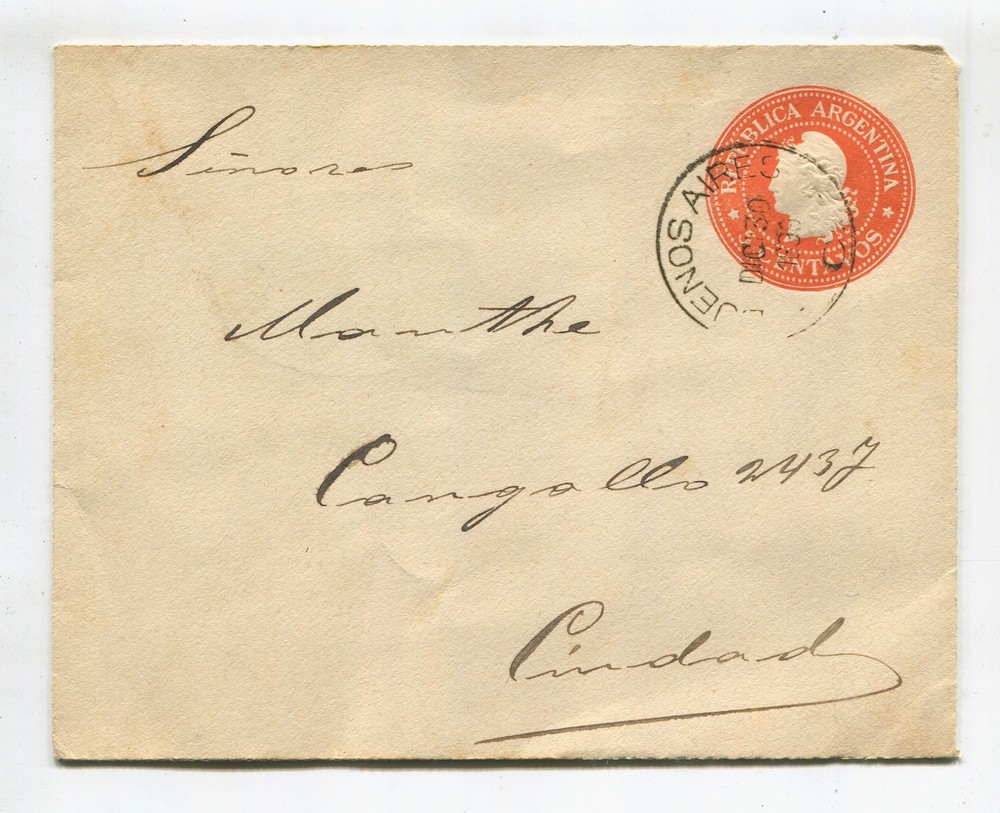 Señores
Manthe
Cangallo 2437
Ciudad
REPUBLICA ARGENTINA
CENTAVOS
BUENOS AIRES
DIC 30